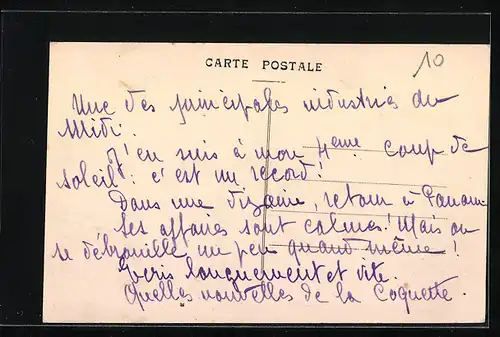 CARTE POSTALE
10
Une des principales industries du
Midi.
J'en suis à mon 4ème coup de
soleil : c'est un record !
Dans une dizaine, retour à Panam
Les affaires sont calmes ! Mais on
se débrouille un peu quand même !
Ecris longuement et vite.
Quelles nouvelles de la Coquette.